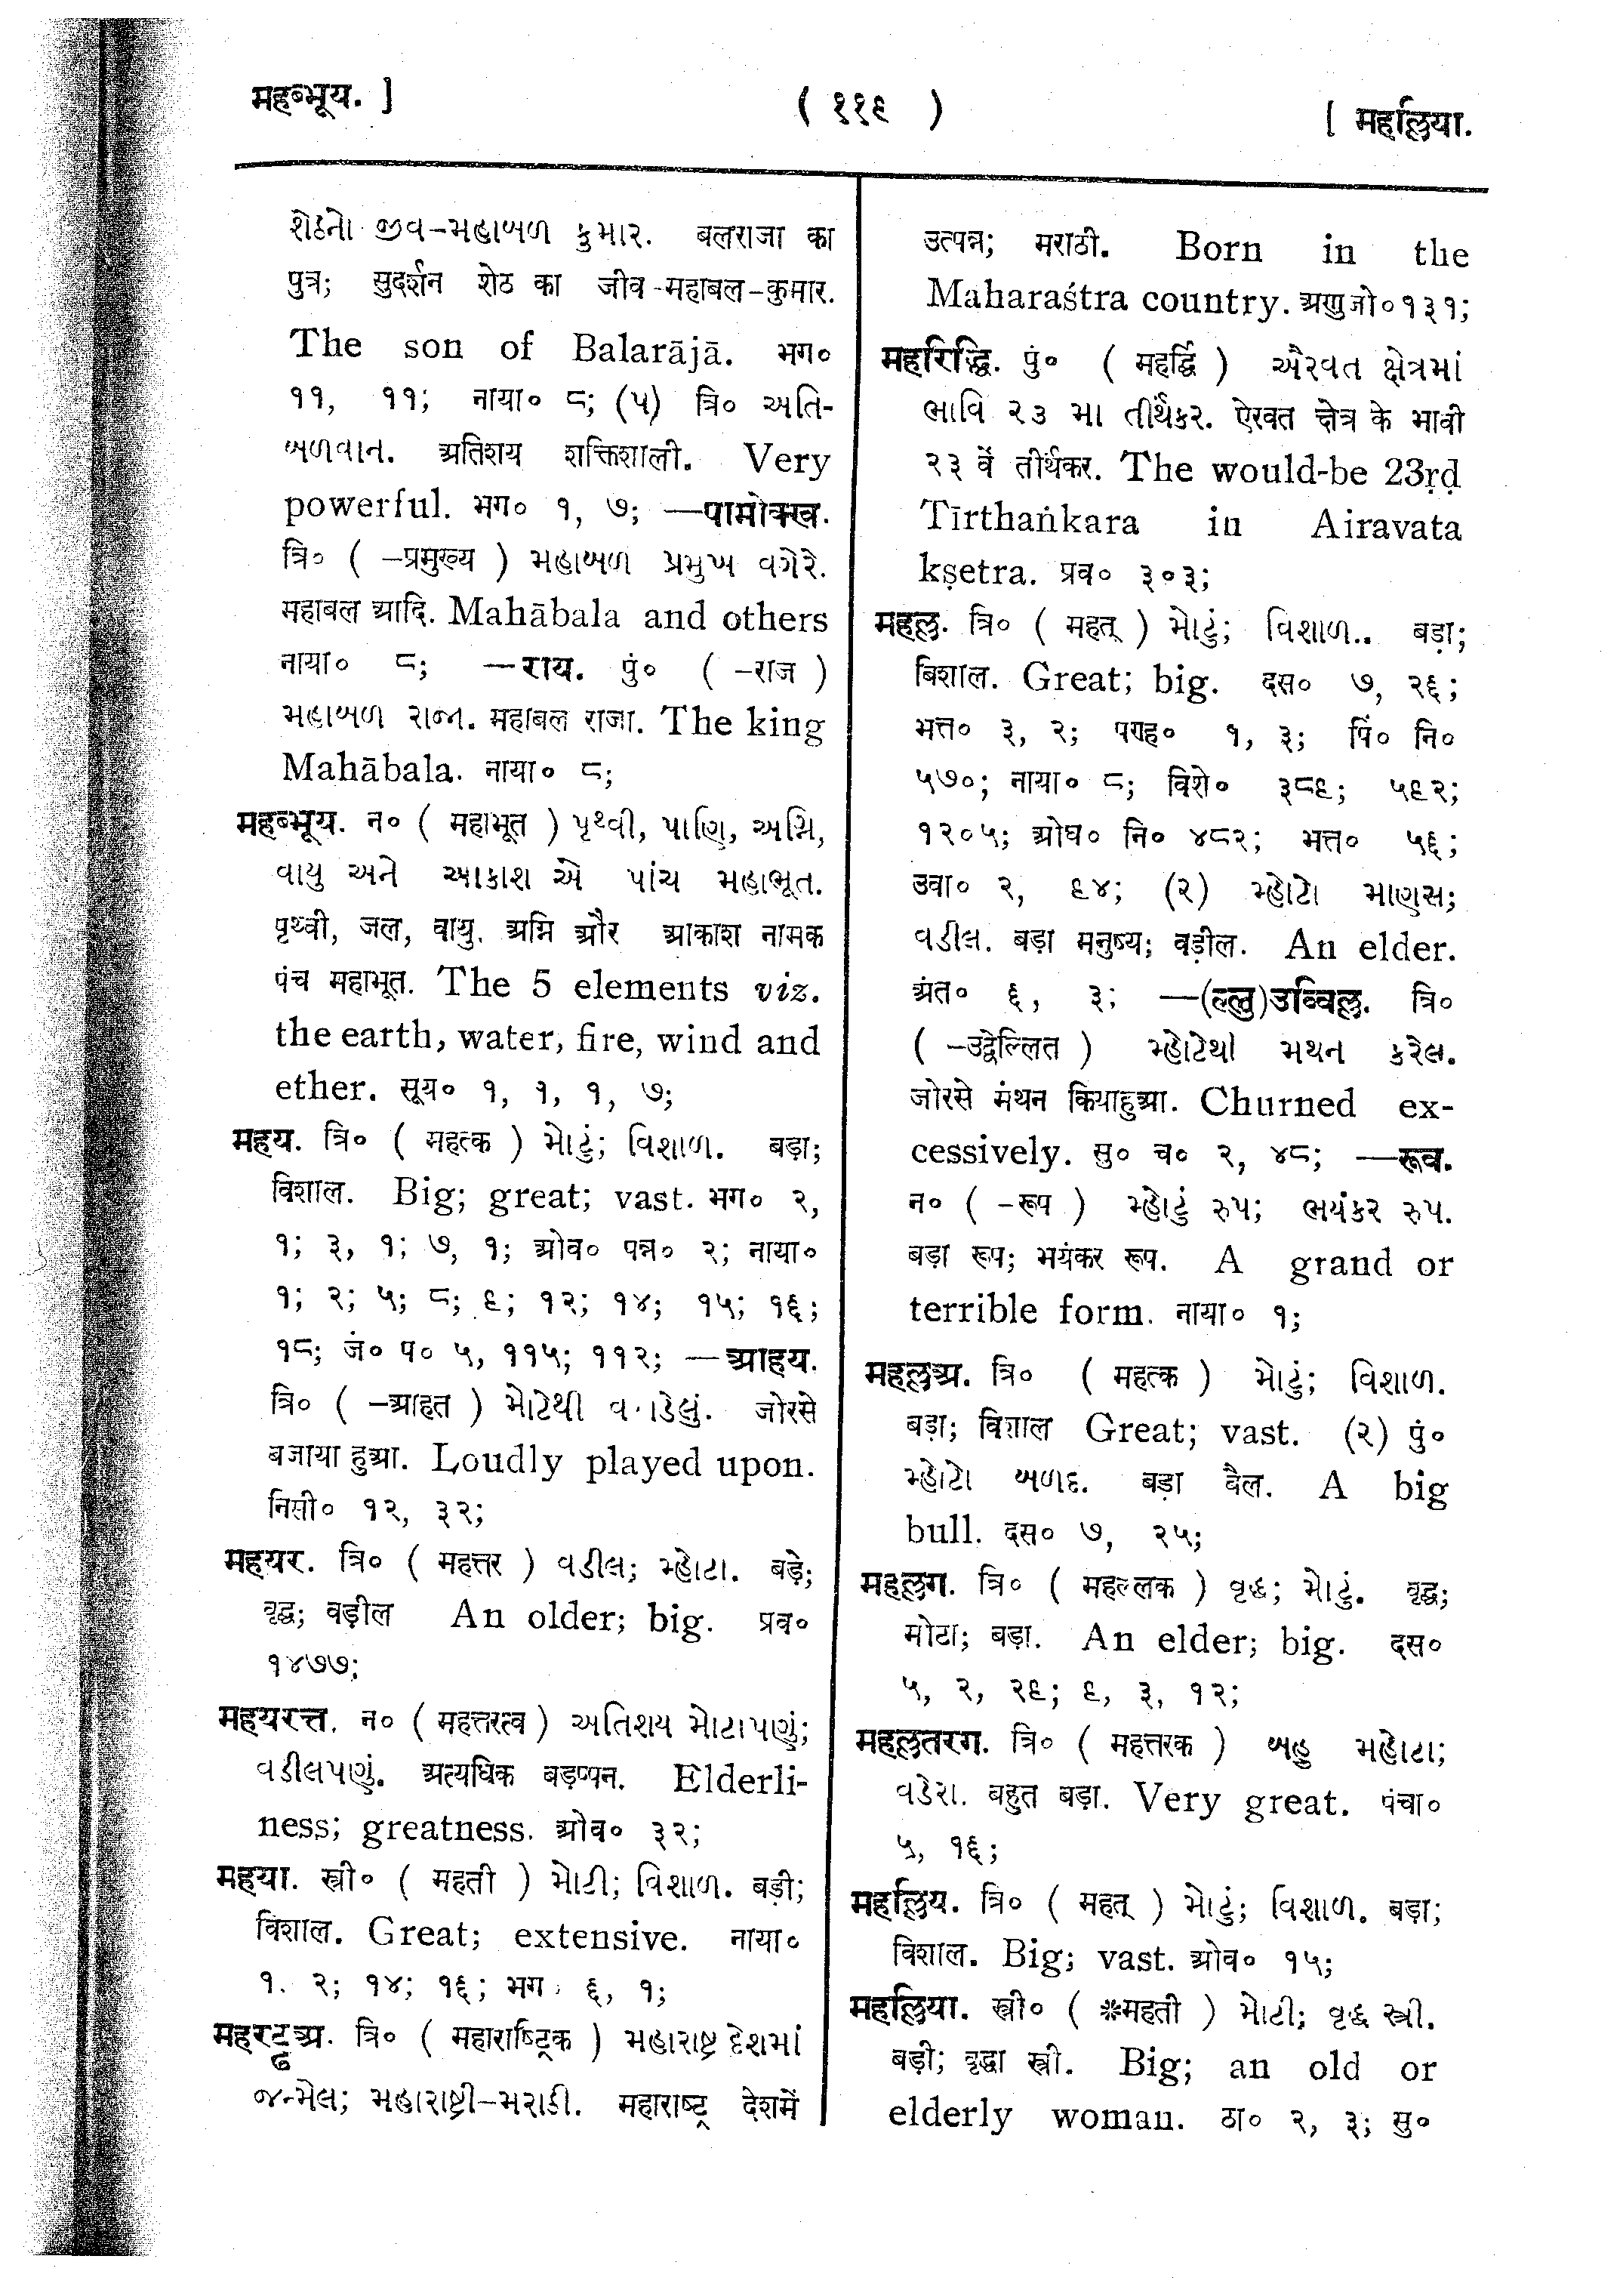 महब्भूय. ]
( ११९ )
[ महल्लिया.
શેઠનો જીવ-મહાબળ કુમાર. बलराजा का
पुत्र; सुदर्शन शेठ का जीव-महाबल-कुमार.
The son of Balarājā. भग०
११, ११; नाया० ८; (५) त्रि० અતિ-
બળવાન. अतिशय शक्तिशाली. Very
powerful. भग० १, ७; —पामोक्ख.
त्रि० ( -प्रमुख्य ) મહાબળ પ્રમુખ વગેરે.
महाबल आदि. Mahābala and others
नाया० ८; —राय. पुं० ( -राज )
મહાબળ રાજા. महाबल राजा. The king
Mahābala. नाया० ८;
महब्भूय. न० ( महाभूत ) પૃથ્વી, પાણિ, અગ્નિ,
વાયુ અને આકાશ એ પાંચ મહાભૂત.
पृथ्वी, जल, वायु. अग्नि और आकाश नामक
पंच महाभूत. The 5 elements viz.
the earth, water, fire, wind and
ether. सूय० १, १, १, ७;
महय. त्रि० ( महत्क ) મોટું; વિશાળ. बड़ा;
विशाल. Big; great; vast. भग० २,
१; ३, १; ७, १; ओव० पन्न० २; नाया०
१; २; ५; ८; ९; १२; १४; १५; १६;
१८; जं० प० ५, ११५; ११२; —आहय.
त्रि० ( -आहत ) મોટેથી વગાડેલું. जोरसे
बजाया हुआ. Loudly played upon.
निसी० १२, ३२;
महयर. त्रि० ( महत्तर ) વડીલ; મ્હોટા. बड़े;
वृद्ध; वड़ील An older; big. प्रव०
१४७७;
महयरत्त. न० ( महत्तरत्व ) અતિશય મોટાપણું;
વડીલપણું. अत्यधिक बड़प्पन. Elderli-
ness; greatness. ओव० ३२;
महया. स्त्री० ( महती ) મોટી; વિશાળ. बड़ी;
विशाल. Great; extensive. नाया०
१. २; १४; १६; भग ६, १;
महरट्ठअ. त्रि० ( महाराष्ट्रिक ) મહારાષ્ટ્ર દેશમાં
જન્મેલ; મહારાષ્ટ્રી-મરાઠી. महाराष्ट्र देशमें
उत्पन्न; मराठी. Born in the
Maharaśtra country. अणुजो० १३१;
महरिद्धि. पुं० ( महर्द्धि ) ઐરવત ક્ષેત્રમાં
ભાવિ ૨૩ મા તીર્થંકર. ऐरवत क्षेत्र के भावी
२३ वें तीर्थकर. The would-be 23ṛḍ
Tīrthaṅkara in Airavata
kṣetra. प्रव० ३०३;
महल्ल. त्रि० ( महत् ) મોટું; વિશાળ.. बड़ा;
बिशाल. Great; big. दस० ७, २६;
भत्त० ३, २; पण्ह० १, ३; पिं० नि०
५७०; नाया० ८; विशे० ३८९; ५९२;
१२०५; ओघ० नि० ४८२; भत्त० ५६;
उवा० २, ९४; (२) મ્હોટો માણસ;
વડીલ. बड़ा मनुष्य; वड़ील. An elder.
अंत० ६, ३; —(ल्लु)उव्विल्ल. त्रि०
( -उद्वेल्लित ) મ્હોટેથી મથન કરેલ.
जोरसे मंथन कियाहुआ. Churned ex-
cessively. सु० च० २, ४८; —रूव.
न० ( -रूप ) મ્હોટું રુપ; ભયંકર રુપ.
बड़ा रूप; भयंकर रूप. A grand or
terrible form. नाया० १;
महल्लअ. त्रि० ( महत्क ) મોટું; વિશાળ.
बड़ा; विशाल Great; vast. (२) पुं०
મ્હોટો બળદ. बड़ा बैल. A big
bull. दस० ७, २५;
महल्लग. त्रि० ( महल्लक ) વૃદ્ધ; મોટું. वृद्ध;
मोटा; बड़ा. An elder; big. दस०
५, २, २९; ९, ३, १२;
महल्लतरग. त्रि० ( महत्तरक ) બહુ મહોટા;
વડેરા. बहुत बड़ा. Very great. पंचा०
५, १६;
महल्लिय. त्रि० ( महत् ) મોટું; વિશાળ. बड़ा;
विशाल. Big; vast. ओव० १५;
महल्लिया. स्त्री० ( *महती ) મોટી; વૃદ્ધ સ્ત્રી.
बड़ी; वृद्धा स्त्री. Big; an old or
elderly woman. ठा० २, ३; सु०